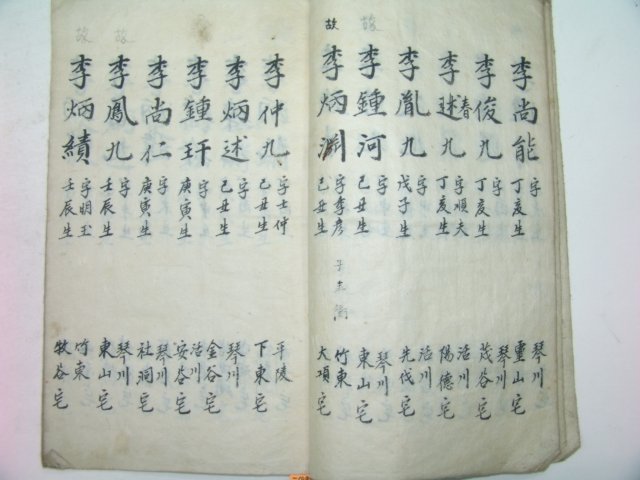 李尚能 字 丁亥生 琴川 靈山宅
李俊九 字 丁亥生 琴川 茂谷宅
李球九 春 字順夫 丁亥生 活川 陽德宅
李胤九 字 戊子生 活川 先伐宅
故 李鍾河 字 己丑生 琴川 東山宅
故 李炳渊 字季彦 己丑生 竹東 大項宅
李仲九 字士仲 己丑生 平陵 下東宅
李炳述 字 己丑生 琴川 金谷宅
李鍾玕 字 庚寅生 活川 安谷宅
李尚仁 字 庚寅生 琴川 社洞宅
故 李鳳九 字 壬辰生 琴川 東山宅
故 李炳績 字明玉 壬辰生 竹東 牧谷宅